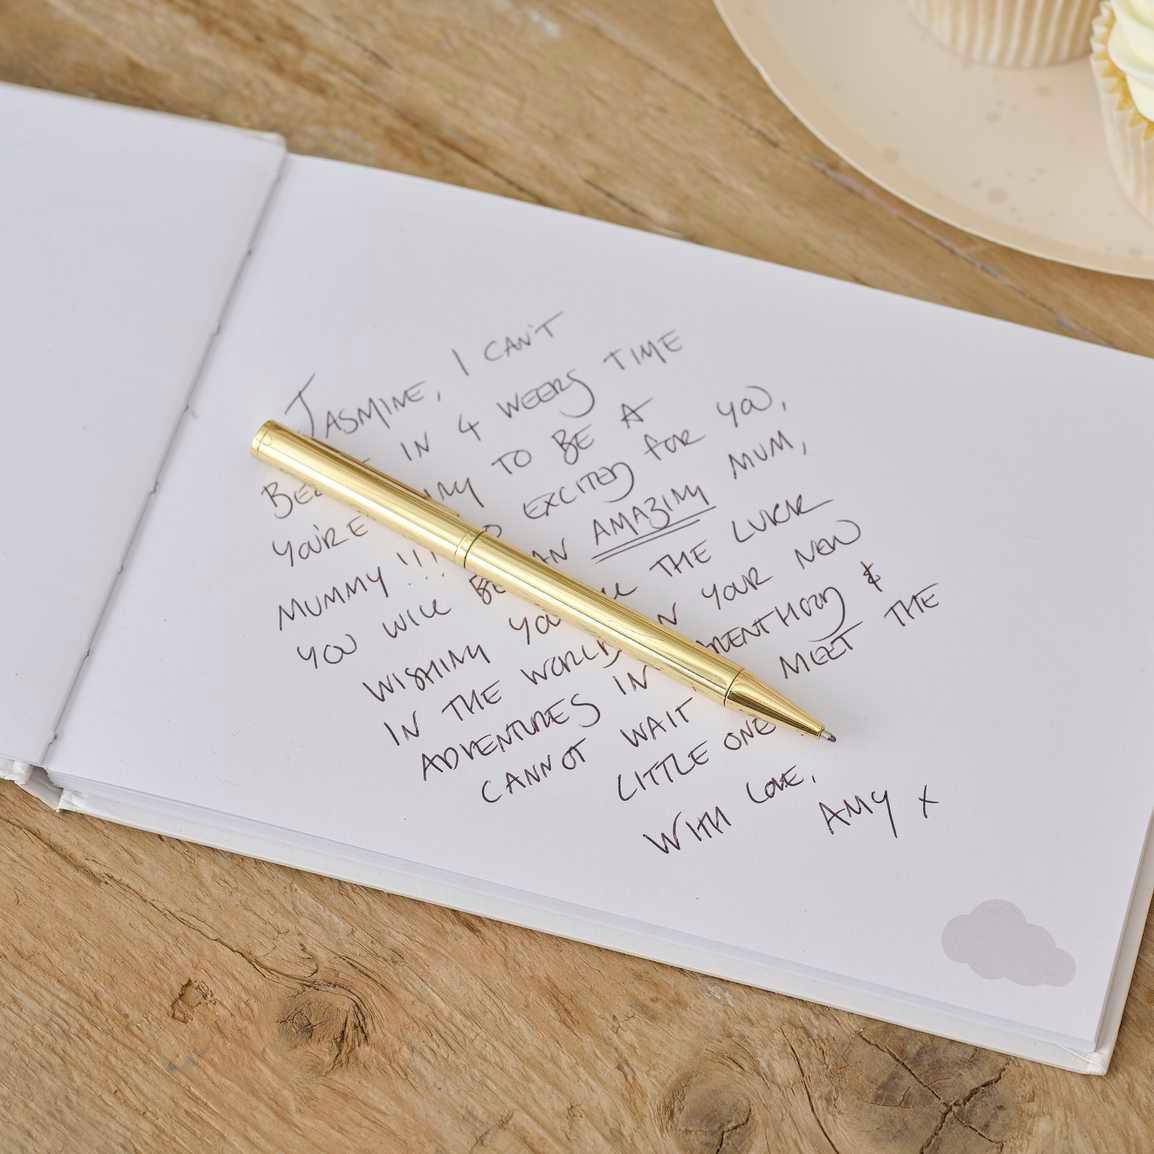 JASMINE, I CAN'T
IN 4 WEEKS TIME
YOU'RE TO BE A
MUMMY!!! EXCITED FOR YOU,
YOU WILL BE AN AMAZING MUM,
WISHING THE LUCK
IN THE WORLD IN YOUR NEW
ADVENTURES IN &
CANNOT WAIT MEET THE
LITTLE ONE
WITH LOVE,
AMY x